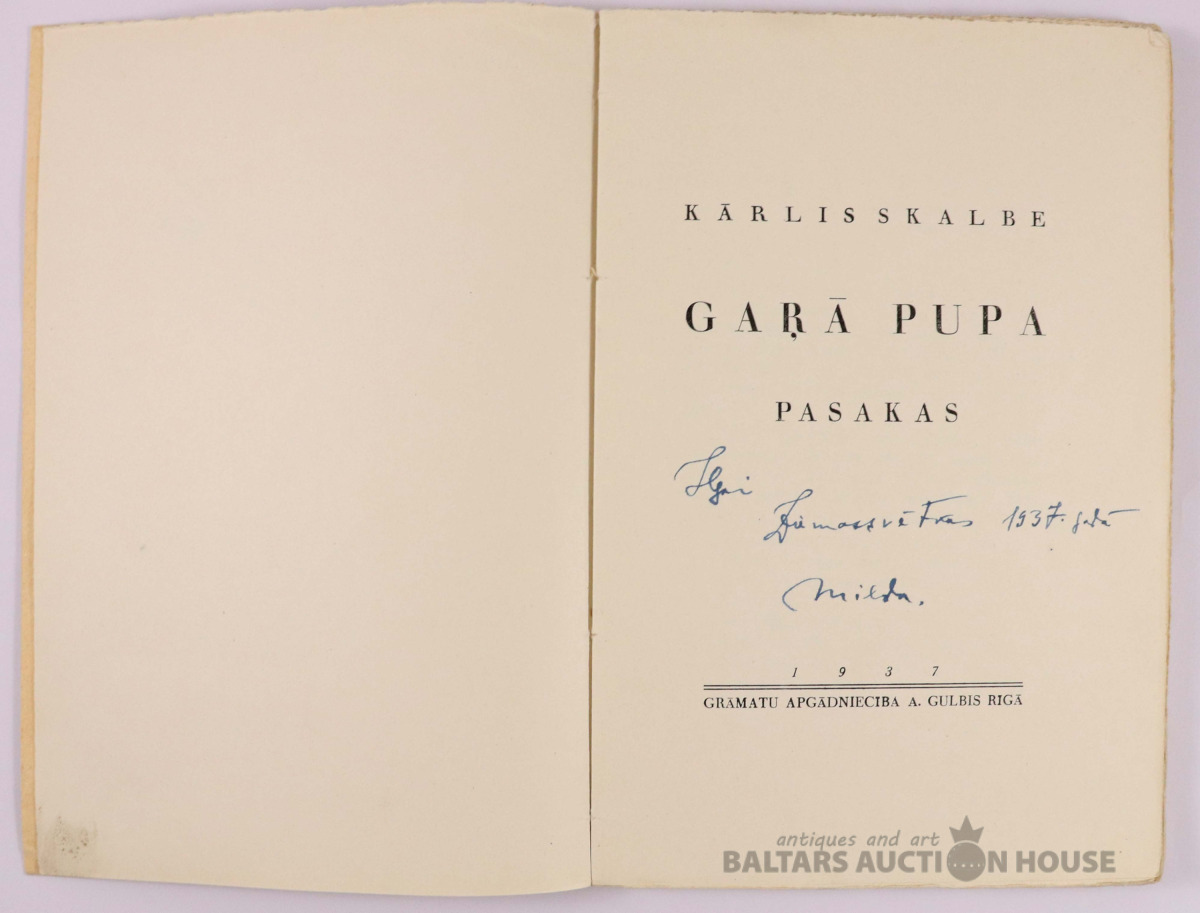 KĀRLIS SKALBE
GAŖĀ PUPA
PASAKAS
Ilgai
Ziemassvētkos 1937. gadā
Milda.
1937
GRĀMATU APGĀDNIECĪBA A. GULBIS RĪGĀ
antiques and art
BALTARS AUCTION HOUSE